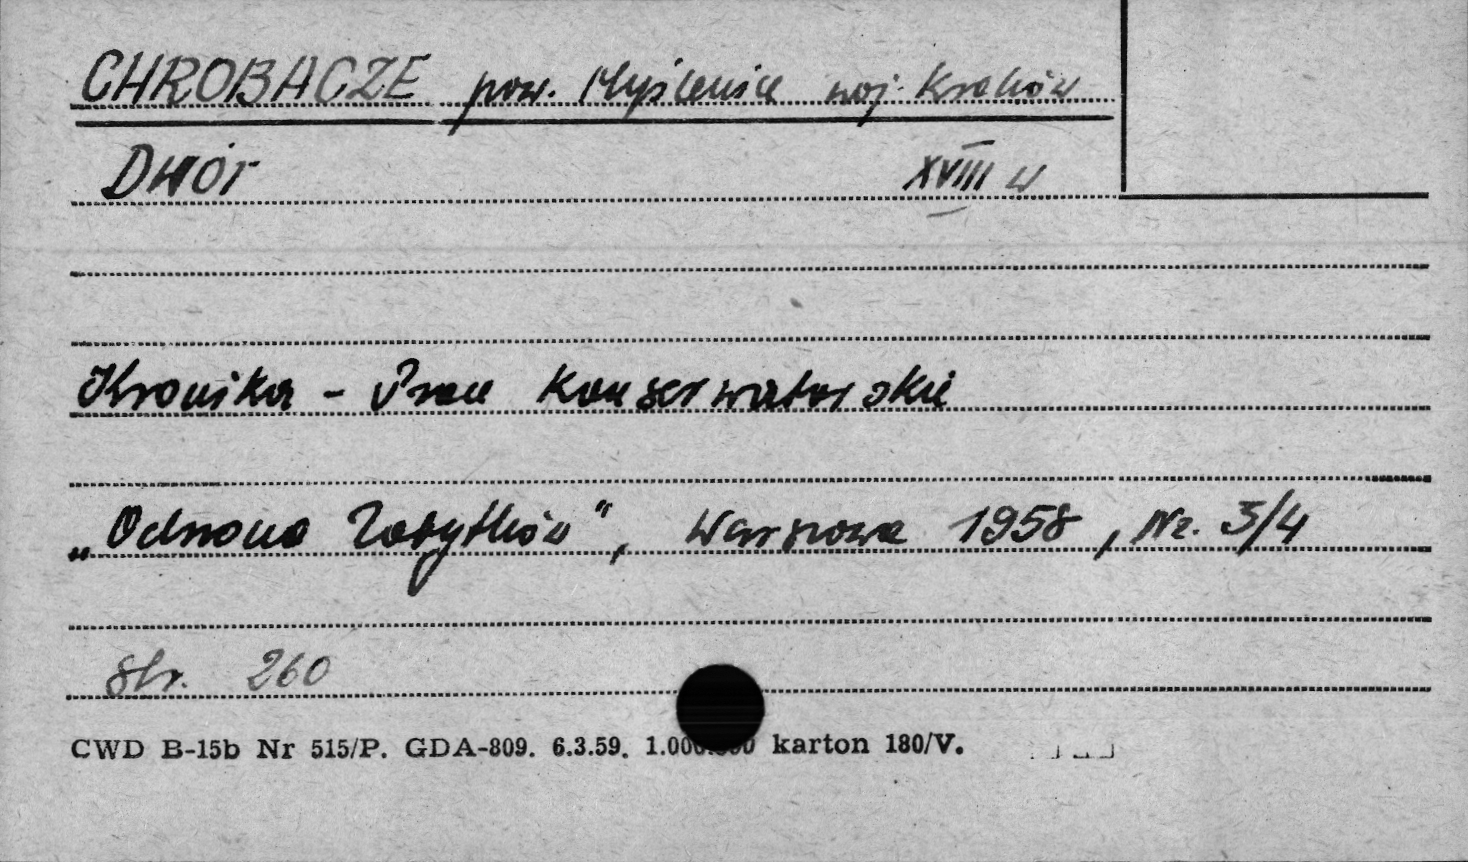 CHROBACZE pow. Myślenice woj. Kraków
Dwór XVIII w
Kronika - Prace Konserwatorskie
„Ochrona Zabytków", Warszawa 1958, Nr. 3/4
Str. 260
CWD B-15b Nr 515/P. GDA-809. 6.3.59. karton 180/V.